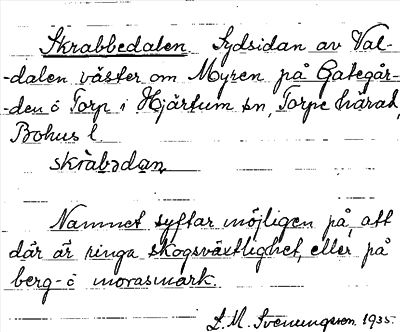 Skrabbedalen. Sydsidan av Val-
-dalen väster om Myren på Gategår-
-den i Torp i Hjärtum sn, Torpe härad,
Bohus l
skràbədan
Namnet syftar möjligen på, att
där är ringa skogsväxtlighet, eller på
berg- o morasmark.
L. M. Svenungsson 1935.